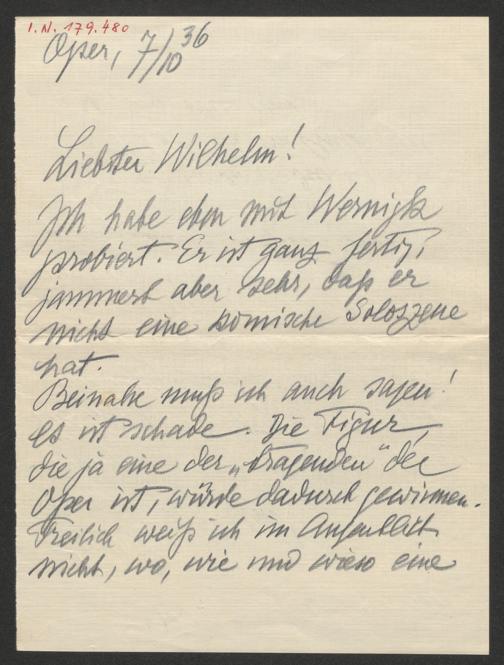 I.N. 179.480
Oper, 7/10 36
Liebster Wilhelm!
Ich habe eben mit Wernigk
probiert. Er ist ganz fertig,
jammert aber sehr, daß er
nicht eine komische Soloszene
hat.
Beinahe muß ich auch sagen!
es ist schade. Die Figur,
die ja eine der „tragenden" der
Oper ist, würde dadurch gewinnen.
Freilich weiß ich im Augenblick
nicht, wo, wie und wieso eine